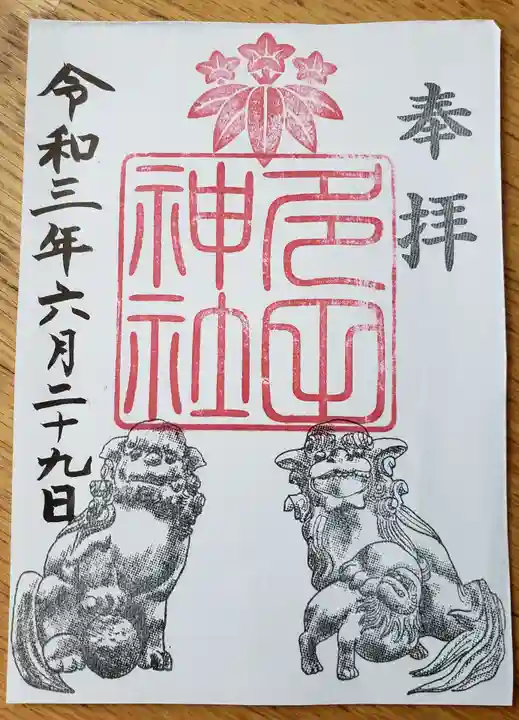 奉拝
多田
神社
令和三年六月二十九日